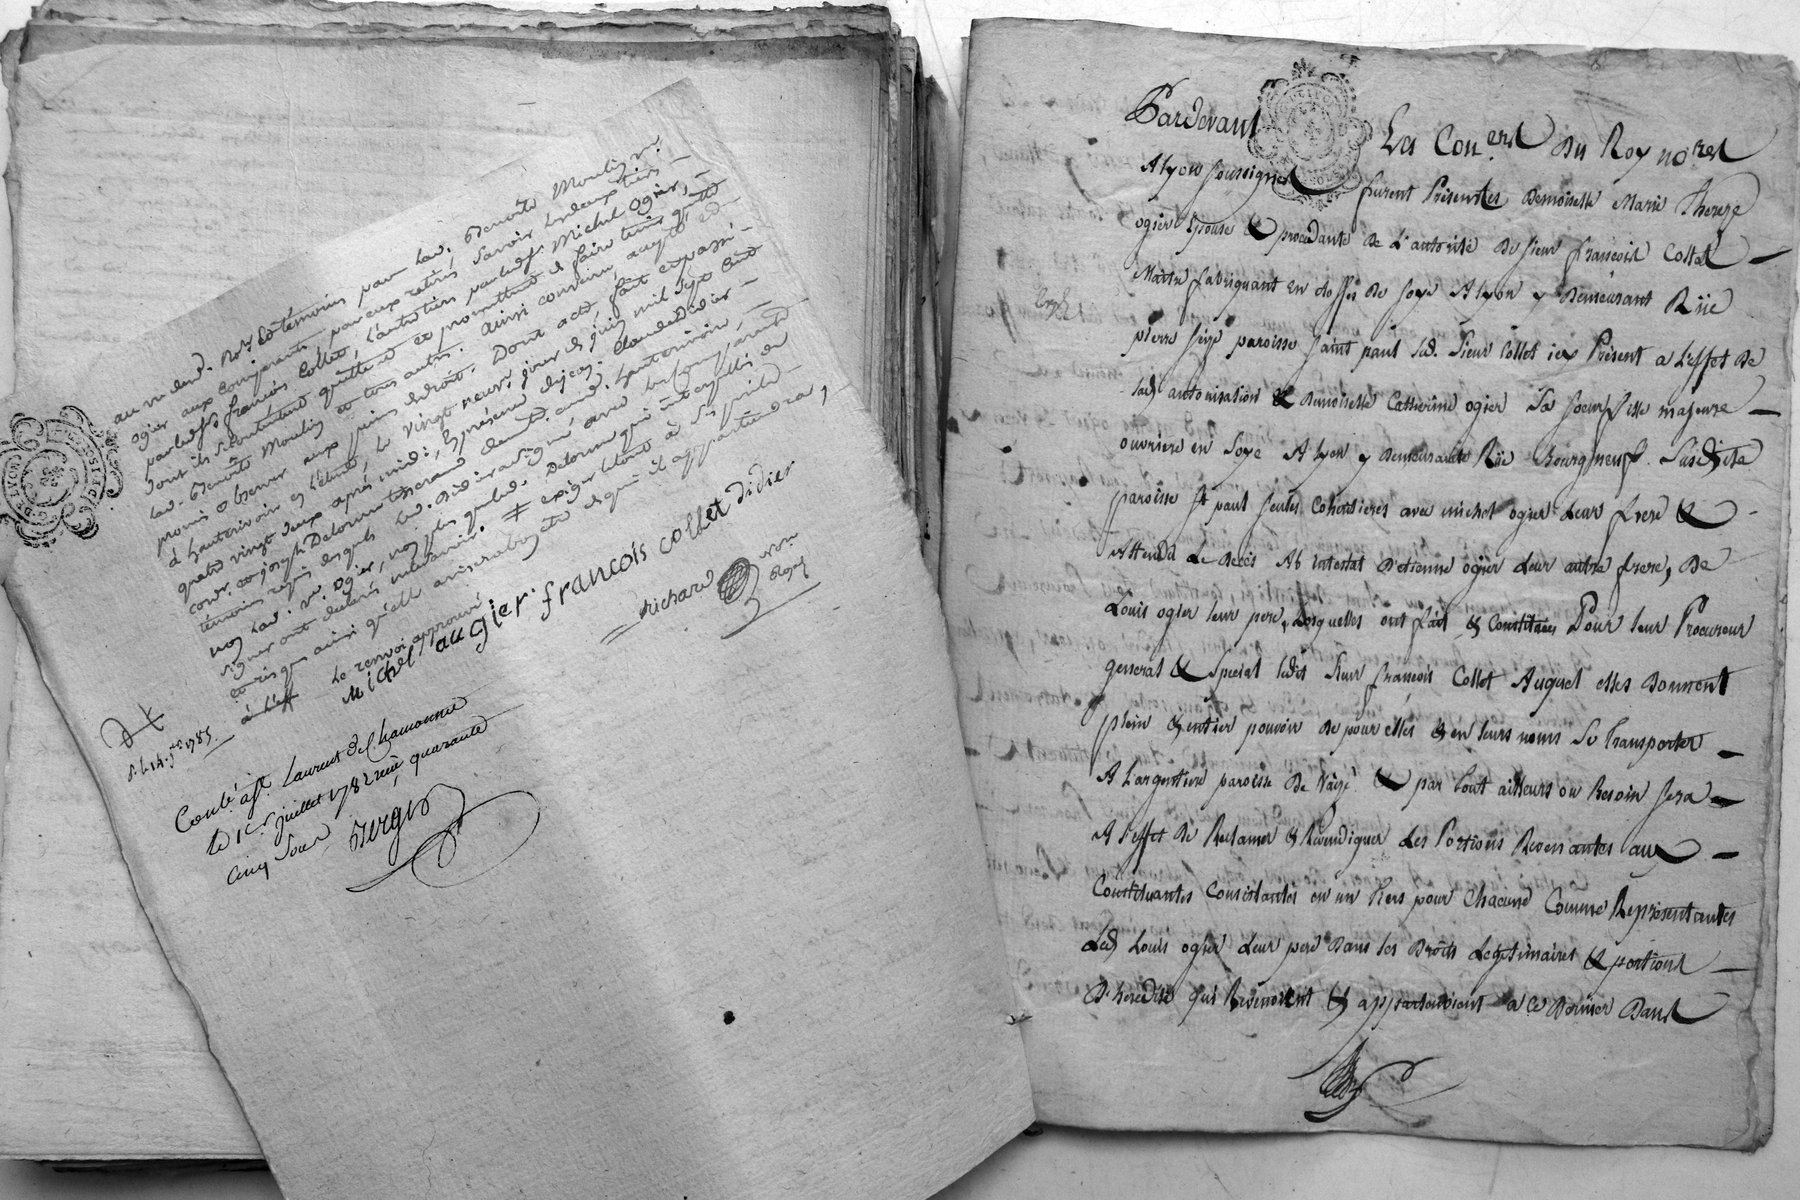 au vu desd. no.res et témoins par lad. Benoîte Moulin v.e
ogier aux comparants par eux retirés savoir les deux tiers
par led. s.r françois Collet, l'autre tiers par led. s.r Michel Ogier,
dont ils se contentent quittent et promettent de faire tenir quitte
lad. Benoîte Moulin et tous autres. ainsi convenu, accepté,
promis observer aux peines de droit. Dont acte, fait et passé
à hauterivoire en l'étude, le vingt neuf juin mil sept cent
quatre vingt deux après midi, en présence de
et joseph Delorme tisserand demt. aud. hauterivoire,
témoins requis lesquels led. Didier a signé, avec les comparants
non lad. v.e Ogier, non plus que led. Delorme qui interpellés de
signer ont déclaré ne savoir. # exiger le tout à
et ainsi qu'elle avisera bon être et qu'il appartiendra,
Le renvoi approuvé
Michel augier francois collet didier
richard no.re
Royal
Con.lé à St. Laurent de Chamousset
le 1er juillet 1782 reçu quarante
cinq sous Berger
Pardevant Les Con.ers du Roy no.res
A lyon soussignés furent Présentes Demoiselle Marie Thereze
ogier Epouse & procedante de L'autorité de sieur françois Collet
Maitre fabriquant en etoffes de soye A lyon y Demeurant Rüe
pierre seize paroisse saint paul led. sieur Collet icy Présent a L'effet de
lad. autorisation & Demoiselle Catherine ogier sa soeur fille majeure
ouvriere en soye A lyon y Demeurante Rüe Bourgneuf susdite
paroisse st paul seules Coheritieres avec michel ogier Leur frere &
Attendu Le Decès Ab intestat D'etienne ogier Leur autre frere, De
Louis ogier leur pere, Lesquelles ont fait & Constitués Pour leur Procureur
general & special ledit sieur françois Collet Auquel elles Donnent
plein & entier pouvoir de pour elles & en leurs noms se transporter
A Largentiere paroisse De & par tout ailleurs ou Besoin sera
A l'effet De Reclamer & Revendiquer Les Portions Revenantes aux
Constituantes Consistantes en un tiers pour Chacune Comme Représentantes
Led. Louis ogier Leur pere Dans les Droits Legitimaires & portions
D'heredité qui Revenoient & appartenoient a Ce Dernier Dans